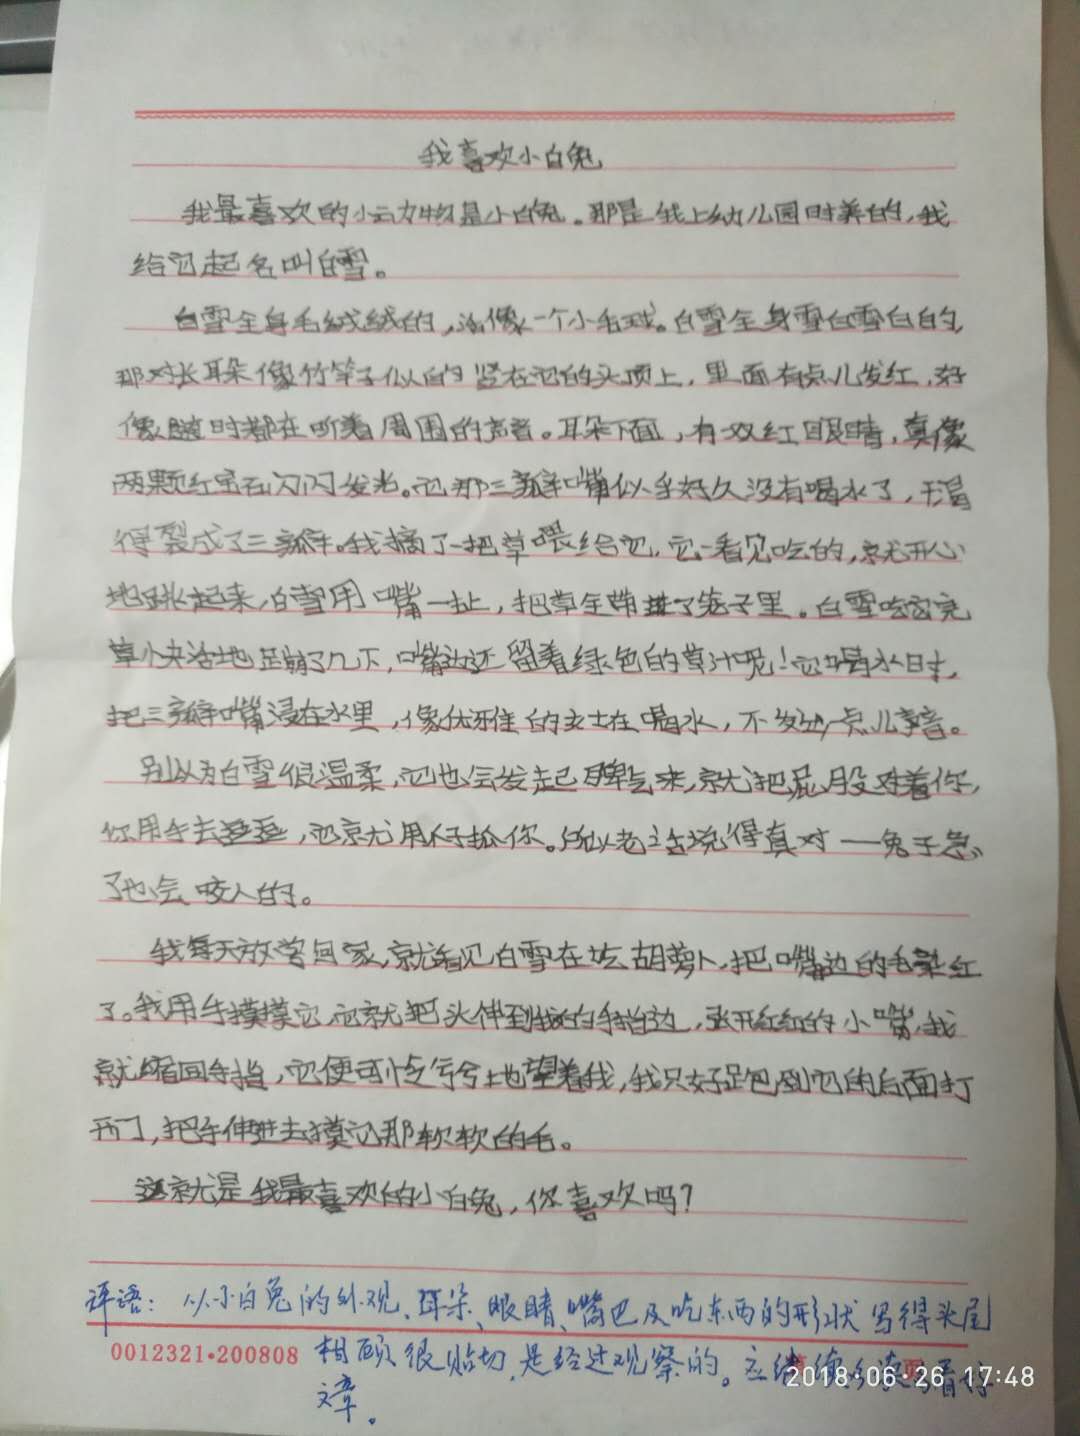 我喜欢小白兔
我最喜欢的小动物是小白兔。那是我上幼儿园时养的,我
给它起名叫白雪。
白雪全身毛绒绒的,活像一个小毛球。白雪全身雪白雪白的,
那对长耳朵像竹竿子似的竖在它的头顶上,里面有点儿发红,好
像随时都在听着周围的声音。耳朵下面,有双红眼睛,真像
两颗红宝石闪闪发光。它那三瓣嘴似乎好久没有喝水了,干冒
得裂成了三瓣。我摘了一把草喂给它,它一看见吃的,就开心
地跳起来,白雪用嘴一扯,把草全带进了笼子里。白雪吃完
草小夹活地蹦了几下,嘴边还留着绿色的草汁呢!它喝水时,
把三瓣嘴浸在水里,像优雅的女士在喝水,不发出一点儿声音。
别以为白雪很温柔,它也会发起脾气来,就把屁股对着你,
你用手去逗逗,它就用爪子抓你。所以老话说得真对——兔子急
了也会咬人的。
我每天放学回家,就看见白雪在吃胡萝卜,把嘴边的毛染红
了。我用手摸摸它,它就把头伸到我的手指边,张开红红的小嘴,我
就缩回手指,它便可怜兮兮地望着我,我只好跑到它的后面打
开门,把手伸进去摸它那软软的毛。
这就是我最喜欢的小白兔,你喜欢吗?
评语:从小白兔的外观、耳朵、眼睛、嘴巴及吃东西的形状写得头尾
0012321·200808 相顾很贴切,是经过观察的。应继续多读多看好
文章。
2018·06·26 17:48